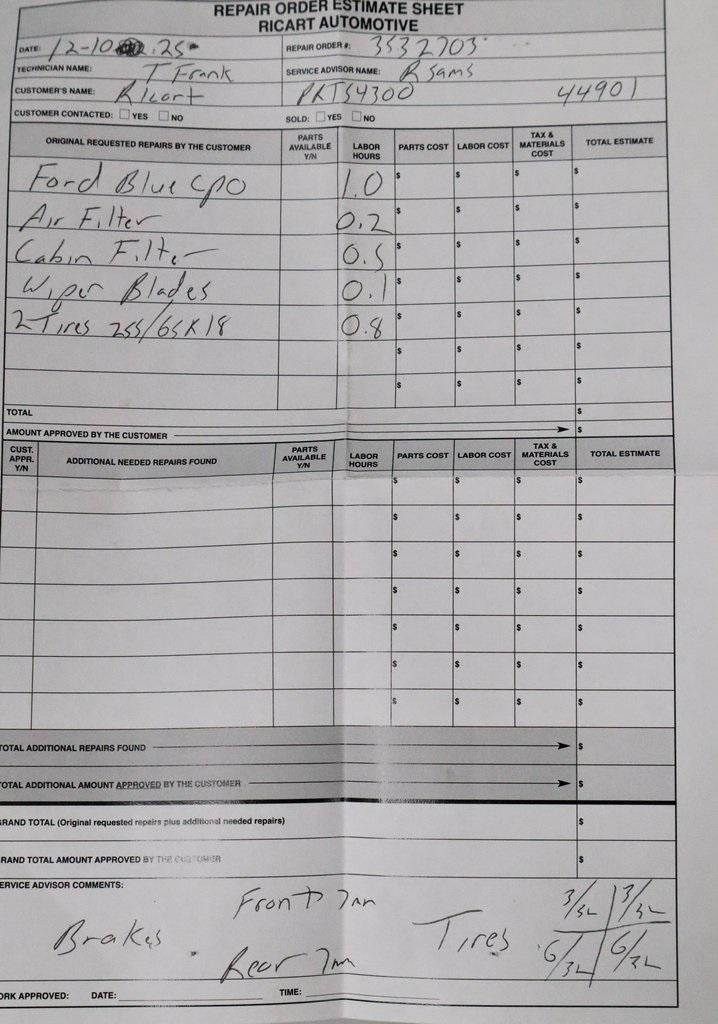 REPAIR ORDER ESTIMATE SHEET
RICART AUTOMOTIVE
DATE: 12-10 25 REPAIR ORDER #: 3532703
TECHNICIAN NAME: T Frank SERVICE ADVISOR NAME: R Sams
CUSTOMER'S NAME: Ricart PRTS4300 44901
CUSTOMER CONTACTED: YES NO SOLD: YES NO
ORIGINAL REQUESTED REPAIRS BY THE CUSTOMER PARTS AVAILABLE Y/N LABOR HOURS PARTS COST LABOR COST TAX & MATERIALS COST TOTAL ESTIMATE
Ford Blue CPO 1.0 $ $ $ $
Air Filter 0.2 $ $ $ $
Cabin Filter 0.5 $ $ $ $
Wiper Blades 0.1 $ $ $ $
2 Tires 255/65R18 0.8 $ $ $ $
$ $ $ $
$ $ $ $
TOTAL $
AMOUNT APPROVED BY THE CUSTOMER $
CUST. APPR. Y/N ADDITIONAL NEEDED REPAIRS FOUND PARTS AVAILABLE Y/N LABOR HOURS PARTS COST LABOR COST TAX & MATERIALS COST TOTAL ESTIMATE
$ $ $ $
$ $ $ $
$ $ $ $
$ $ $ $
$ $ $ $
$ $ $ $
$ $ $ $
TOTAL ADDITIONAL REPAIRS FOUND $
TOTAL ADDITIONAL AMOUNT APPROVED BY THE CUSTOMER $
GRAND TOTAL (Original requested repairs plus additional needed repairs) $
GRAND TOTAL AMOUNT APPROVED BY THE CUSTOMER $
SERVICE ADVISOR COMMENTS:
Front 7mm 3/32 3/32
Brakes Tires
Rear 7mm 6/32 6/32
WORK APPROVED: DATE: TIME: